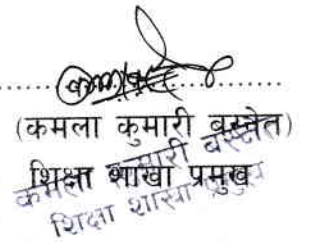 (कमला कुमारी बस्नेत)
शिक्षा शाखा प्रमुख
कमला कुमारी बस्नेत
शिक्षा शाखा प्रमुख